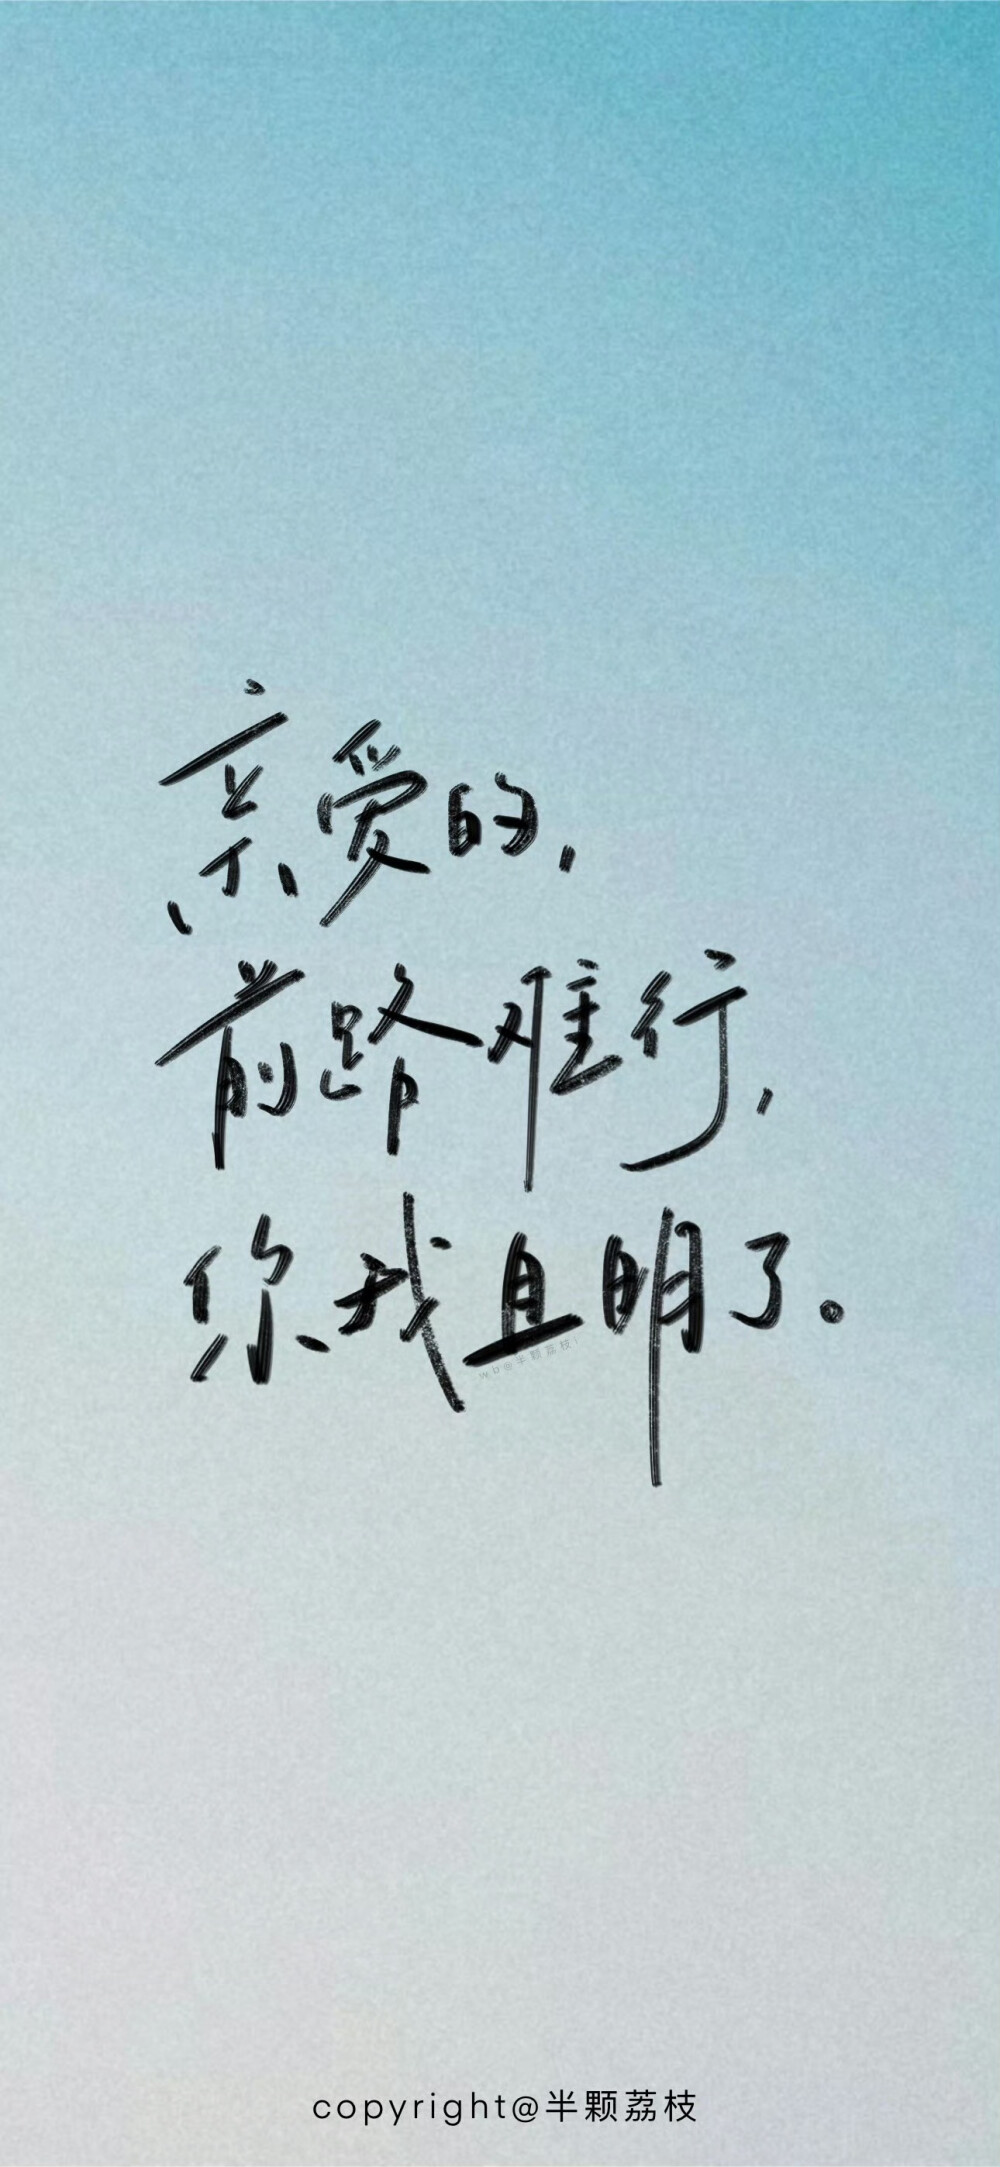 亲爱的，
前路难行，
你我且明了。
wb@半颗荔枝i
copyright@半颗荔枝